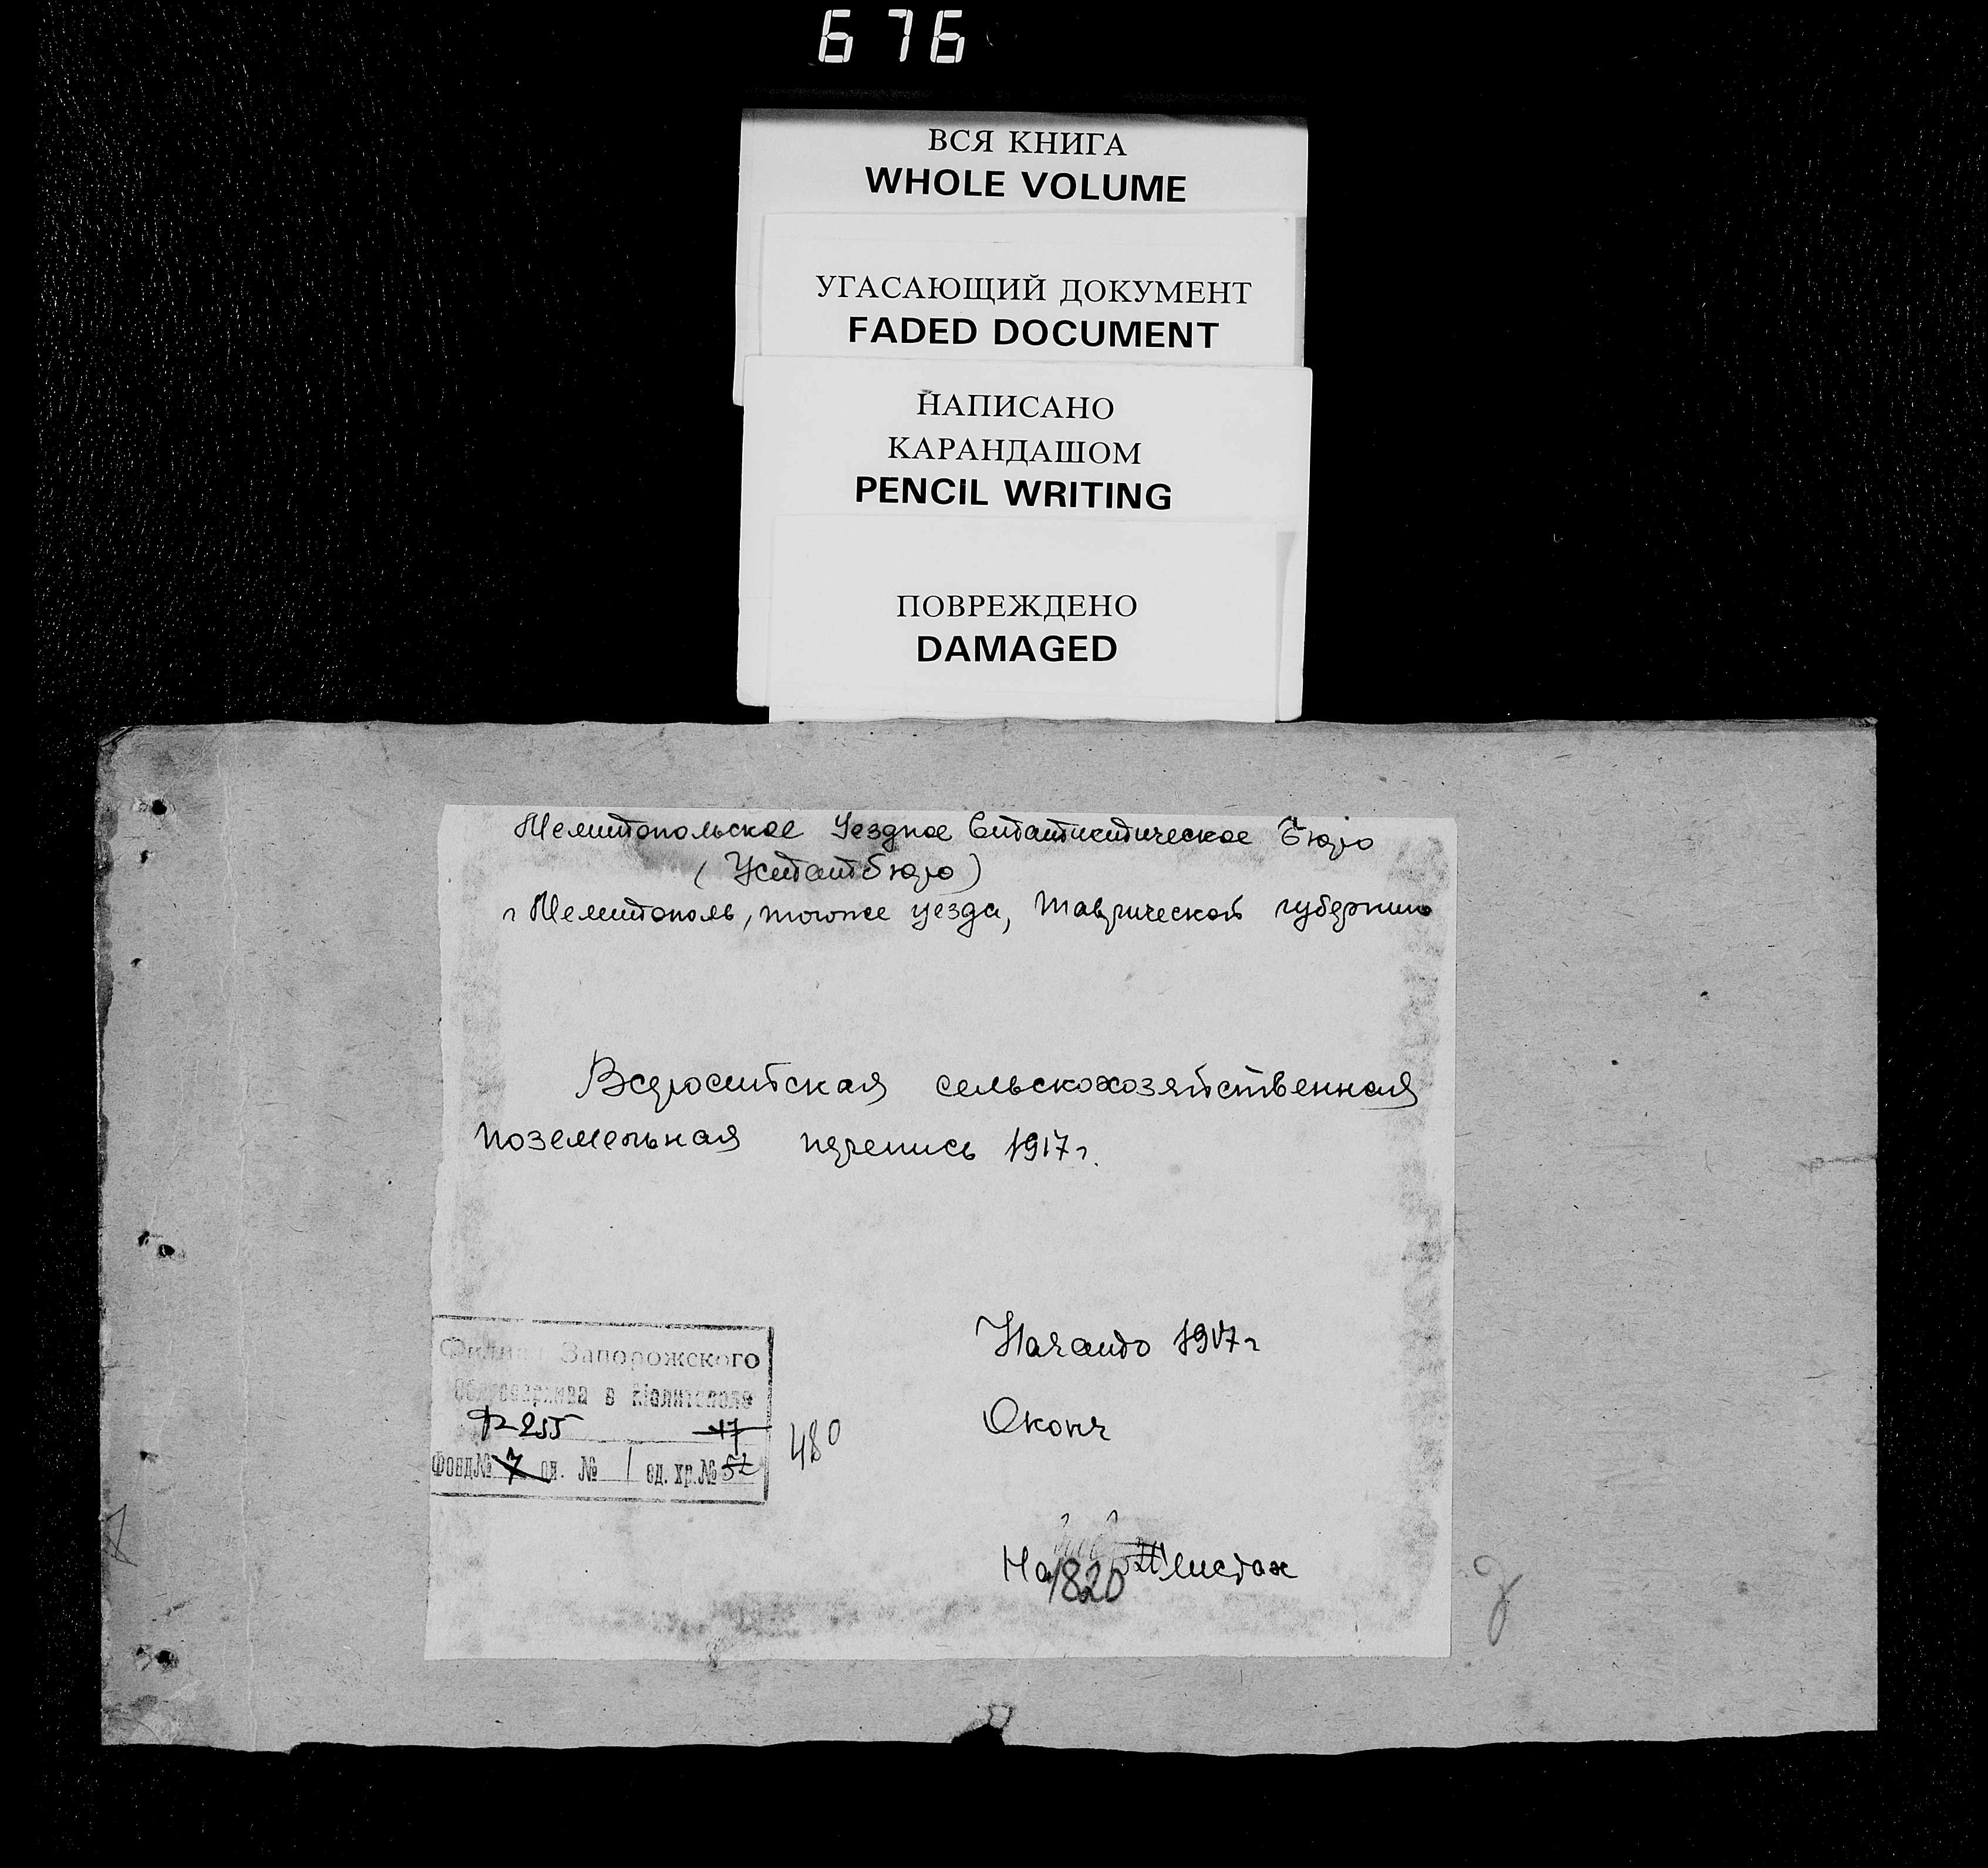 676
ВСЯ КНИГА
WHOLE VOLUME
УГАСАЮЩИЙ ДОКУМЕНТ
FADED DOCUMENT
НАПИСАНО
КАРАНДАШОМ
PENCIL WRITING
ПОВРЕЖДЕНО
DAMAGED
Мелитопольское Уездное Статистическое Бюро
(Устатбюро)
г Мелитополь, того же уезда, Таврической губернии
Всероссийская сельскохозяйственная
поземельная перепись 1917 г.
Начато 1917 г
Оконч
Филиал Запорожского
Облгосархива в Мелитополе
Р-255 47
Фонд № 7 оп. № 1 ед. хр. № 52
480
На 1820 листах